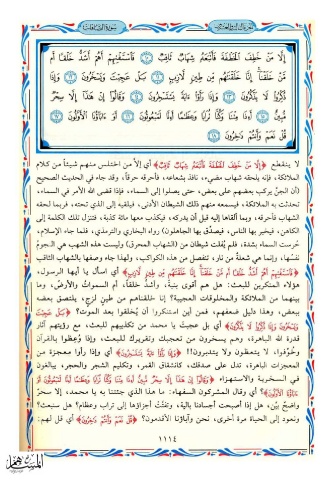 إِلَّا مَنْ خَطِفَ الْخَطْفَةَ فَأَتْبَعَهُ شِهَابٌ ثَاقِبٌ ۝١٠ فَاسْتَفْتِهِمْ أَهُمْ أَشَدُّ خَلْقًا أَم
مَّنْ خَلَقْنَا إِنَّا خَلَقْنَاهُم مِّن طِينٍ لَّازِبٍ ۝١١ بَلْ عَجِبْتَ وَيَسْخَرُونَ ۝١٢ وَإِذَا
ذُكِّرُوا لَا يَذْكُرُونَ ۝١٣ وَإِذَا رَأَوْا آيَةً يَسْتَسْخِرُونَ ۝١٤ وَقَالُوا إِنْ هَٰذَا إِلَّا سِحْرٌ
مُّبِينٌ ۝١٥ أَإِذَا مِتْنَا وَكُنَّا تُرَابًا وَعِظَامًا أَإِنَّا لَمَبْعُوثُونَ ۝١٦ أَوَآبَاؤُنَا الْأَوَّلُونَ ۝١٧
قُلْ نَعَمْ وَأَنتُمْ دَاخِرُونَ ۝١٨
لا ينقطع ﴿إِلَّا مَنْ خَطِفَ الْخَطْفَةَ فَأَتْبَعَهُ شِهَابٌ ثَاقِبٌ﴾ أي إلاّ من اختلس منهم شيئاً من كلام
الملائكة، فإنه يلحقه شهاب مضيء، نافذ بشعاعه، فأحرقه حرقاً، وقد جاء في الحديث الصحيح
(أن الجنّ يركب بعضهم على بعض، حتى يصلوا إلى السماء، فإذا قضى الله الأمر في السماء،
تحدثت به الملائكة، فيسمعه منهم ذلك الشيطان الأدنى، فيلقيه إلى الذي تحته، فربما لحقه
الشهاب فأحرقه، وبما ألقاها إليه قبل أن يدركه، فيكذب معها مائة كذبة، فتنزل تلك الكلمة إلى
الكاهن، فيخبر بها الناس، فيصدّق بها الجاهلون) رواه البخاري والترمذي، فلما جاء الإسلام،
حُرست السماء بشدة، فلم يُفلت شيطان من (الشهاب المحرق) وليست هذه الشهب هي النجومُ
نفسُها، وإنما هي شعلةٌ من نار، تنفصل من هذه الكواكب، ولهذا جاء وصفها بالشهاب الثاقب
﴿فَاسْتَفْتِهِمْ أَهُمْ أَشَدُّ خَلْقًا أَم مَّنْ خَلَقْنَا إِنَّا خَلَقْنَاهُم مِّن طِينٍ لَّازِبٍ﴾ أي اسأل يا أيها الرسول،
هؤلاء المنكرين للبعث: هل هم أقوى بنيةً، وأشدُّ خلقاً، أم السمواتُ والأرضُ، وما
بينهما من الملائكة والمخلوقات العجيبة؟ إنا خلقناهم من طينٍ لزجٍ، يلتصق بعضه
ببعض، وهذا دليل ضعفهم، فمن أين استنكروا أن يُخلقوا بعد الموت؟ ﴿بَلْ عَجِبْتَ
وَيَسْخَرُونَ وَإِذَا ذُكِّرُوا لَا يَذْكُرُونَ﴾ أي بل عجبتَ يا محمد من تكذيبهم للبعث، مع رؤيتهم آثار
قدرة الله الباهرة، وهم يسخرون من تعجبك وتقريرك للبعث، وإذا وُعظوا بالقرآن
وخُوّفوا، لا يتعظون ولا يتدبرون!! ﴿وَإِذَا رَأَوْا آيَةً يَسْتَسْخِرُونَ﴾ أي وإذا رأوا معجزة من
المعجزات الباهرة، تدل على صدقك، كانشقاق القمر، وتكليم الشجر والحجر، يبالغون
في السخرية والاستهزاء ﴿وَقَالُوا إِنْ هَٰذَا إِلَّا سِحْرٌ مُّبِينٌ أَإِذَا مِتْنَا وَكُنَّا تُرَابًا وَعِظَامًا أَإِنَّا لَمَبْعُوثُونَ أَوَ
آبَاؤُنَا الْأَوَّلُونَ﴾؟ أي وقال المشركون السفهاء: ما هذا الذي جئتنا به يا محمد، إلا سحرٌ
واضحٌ بيّن، هل إذا أصبحت أجسادنا بالية، وتفتَّتْ أجزاؤها إلى تراب وعظام؟ هل سنبعث؟
ونعود إلى الحياة مرة أخرى، نحن وآباؤنا الأقدمون؟ ﴿قُلْ نَعَمْ وَأَنتُمْ دَاخِرُونَ﴾ أي قل لهم:
١١١٤